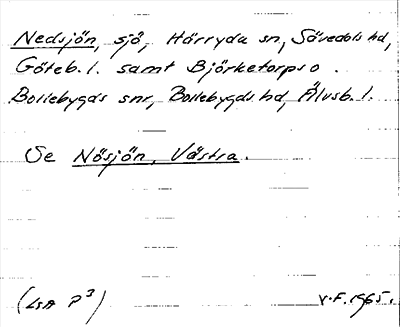 Nedsjön, sjö, Härryda sn, Sävedals hd,
Göteb. l. samt Björketorps o.
Bollebygds snr, Bollebygds hd, Älvsb. l.
Se Nösjön, Västra.
(LSA P³) V.F. 1965.